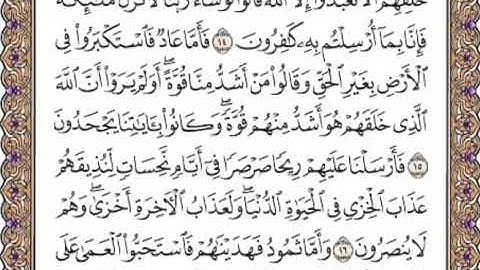 خَلْفِهِمْ أَلَّا تَعْبُدُوٓا۟ إِلَّا ٱللَّهَ ۖ قَالُوا۟ لَوْ شَآءَ رَبُّنَا لَأَنزَلَ مَلَـٰٓئِكَةً
فَإِنَّا بِمَآ أُرْسِلْتُم بِهِۦ كَـٰفِرُونَ ١٤ فَأَمَّا عَادٌ فَٱسْتَكْبَرُوا۟ فِى
ٱلْأَرْضِ بِغَيْرِ ٱلْحَقِّ وَقَالُوا۟ مَنْ أَشَدُّ مِنَّا قُوَّةً ۖ أَوَلَمْ يَرَوْا۟ أَنَّ ٱللَّهَ
ٱلَّذِى خَلَقَهُمْ هُوَ أَشَدُّ مِنْهُمْ قُوَّةً ۖ وَكَانُوا۟ بِـَٔايَـٰتِنَا يَجْحَدُونَ
١٥ فَأَرْسَلْنَا عَلَيْهِمْ رِيحًا صَرْصَرًا فِىٓ أَيَّامٍ نَّحِسَاتٍ لِّنُذِيقَهُمْ
عَذَابَ ٱلْخِزْىِ فِى ٱلْحَيَوٰةِ ٱلدُّنْيَا ۖ وَلَعَذَابُ ٱلْـَٔاخِرَةِ أَخْزَىٰ ۖ وَهُمْ
لَا يُنصَرُونَ ١٦ وَأَمَّا ثَمُودُ فَهَدَيْنَـٰهُمْ فَٱسْتَحَبُّوا۟ ٱلْعَمَىٰ عَلَى